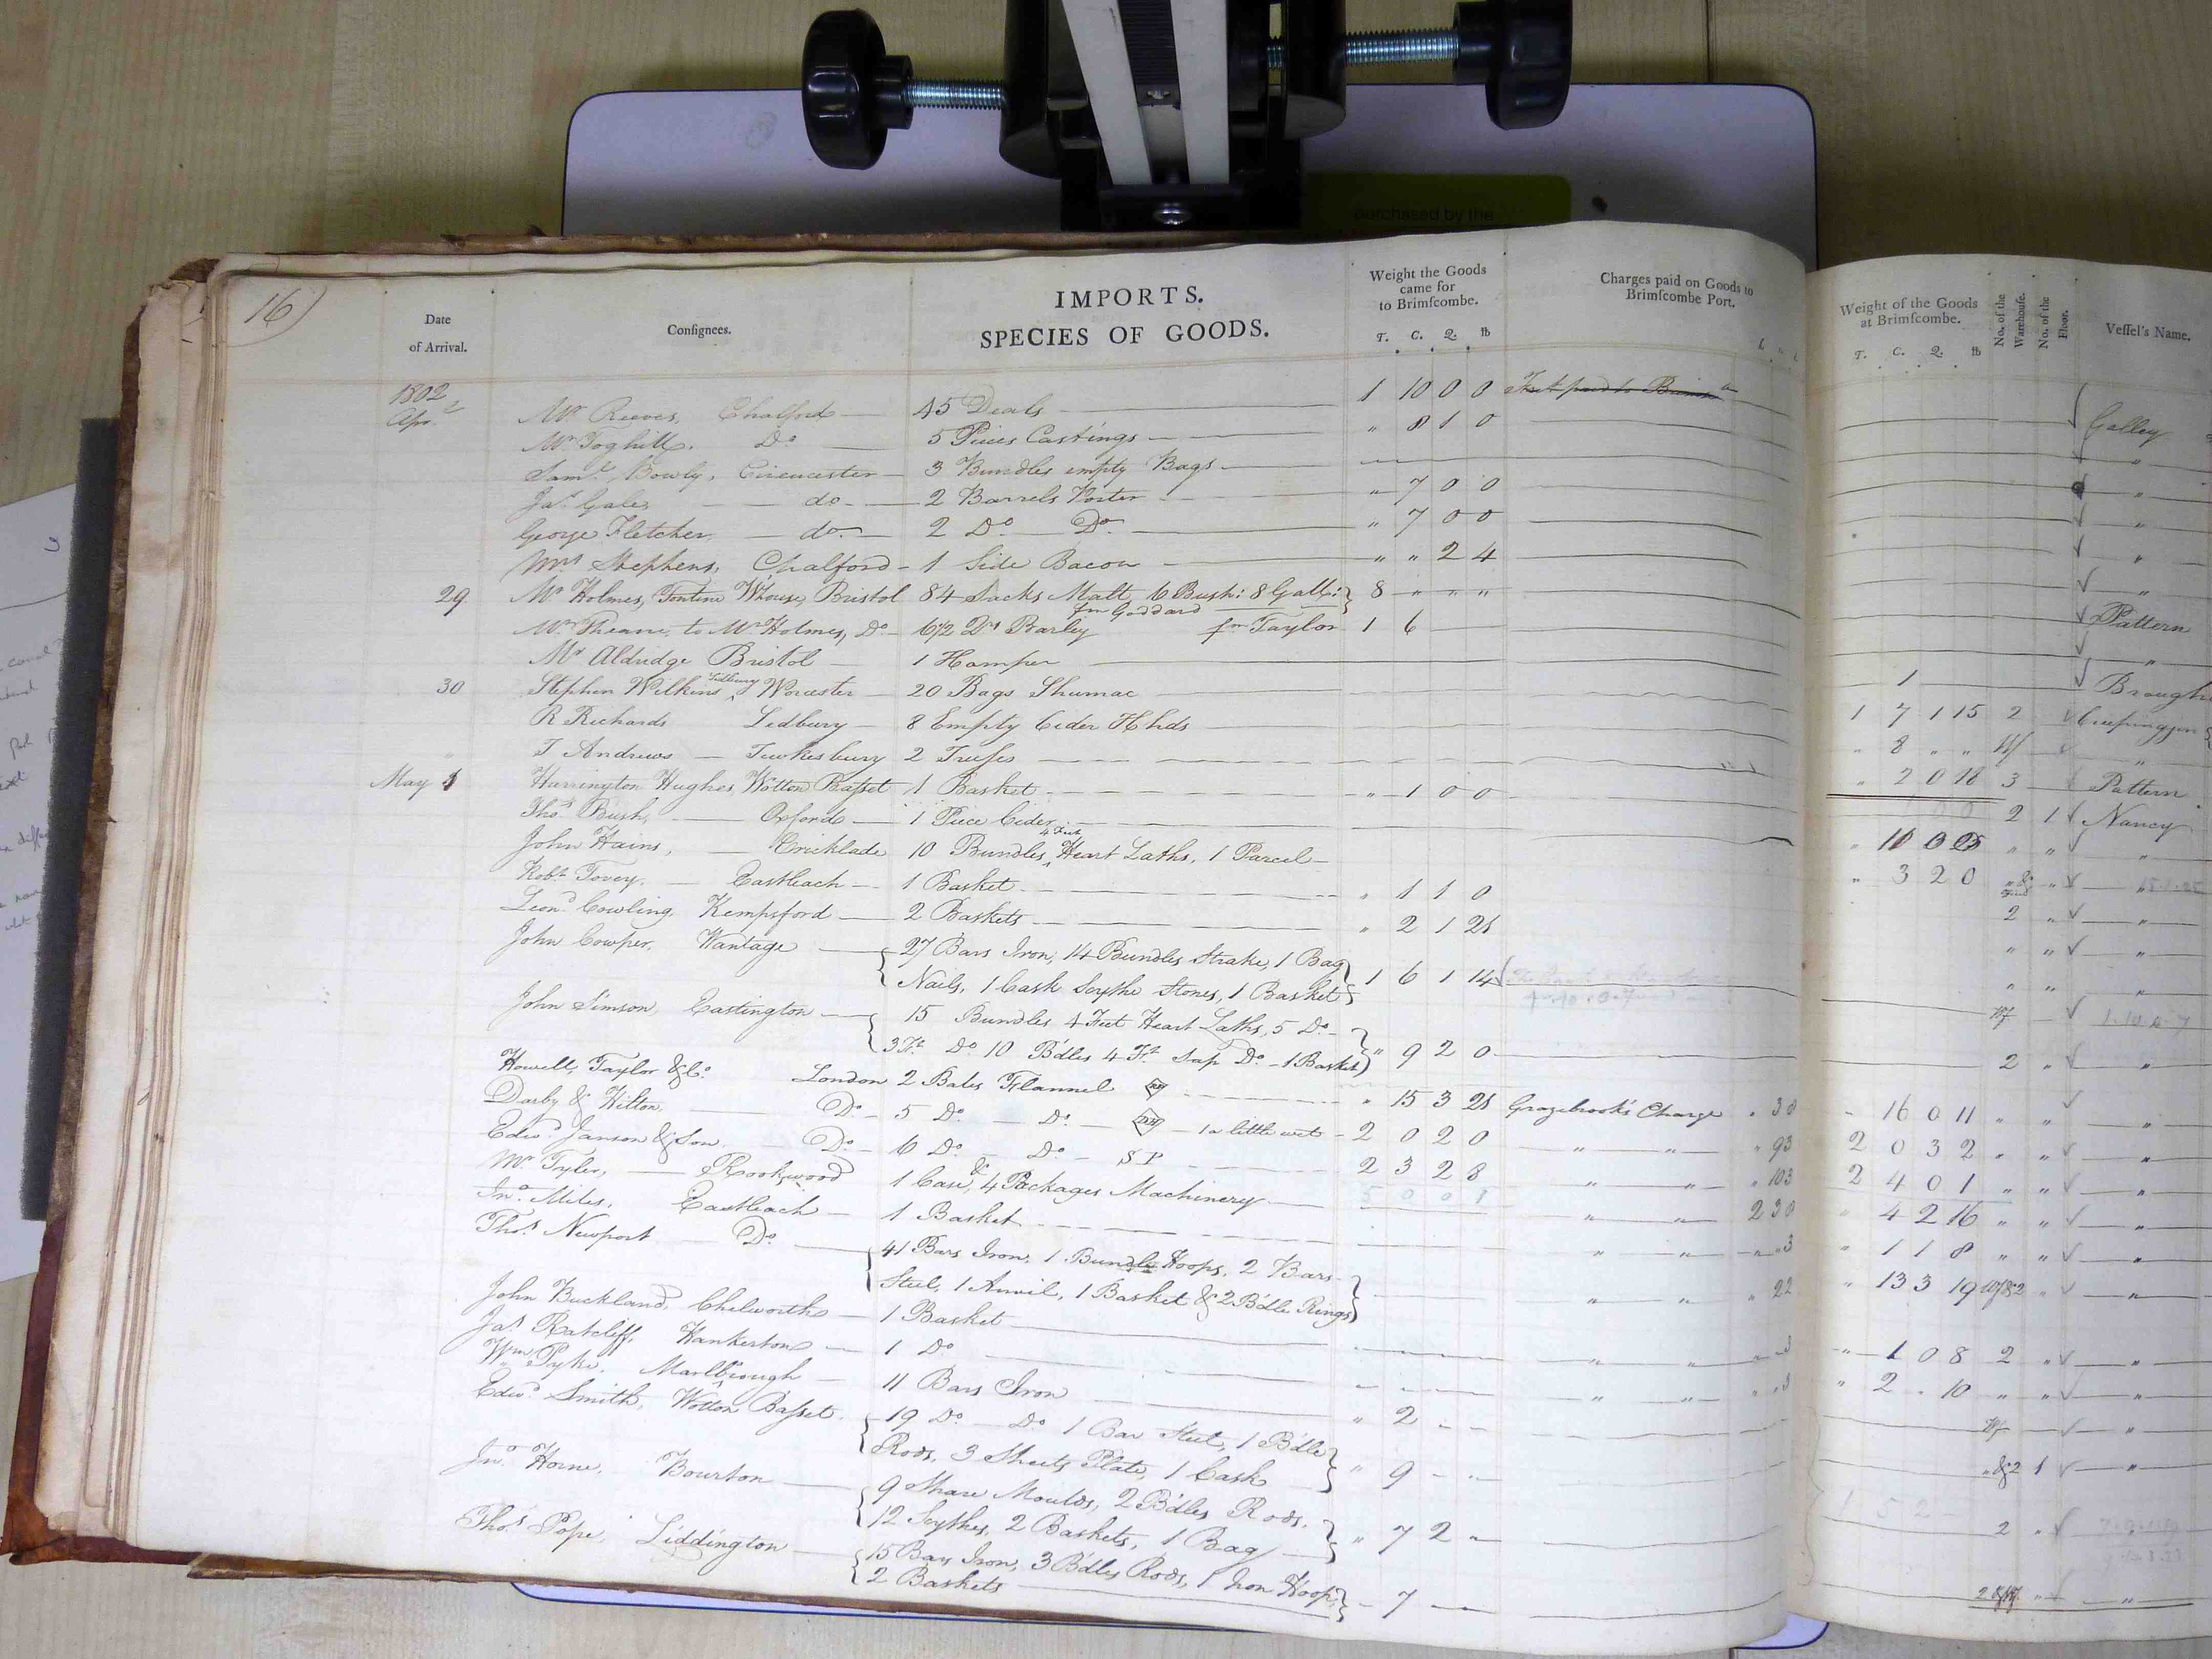 purchased by the
16)
Date
of Arrival.
Consignees.
IMPORTS.
SPECIES OF GOODS.
Weight the Goods
came for
to Brimscombe.
T. C. Q. lb
Charges paid on Goods to
Brimscombe Port.
Weight of the Goods
at Brimscombe.
T. C. Q. lb
No. of the Warehouse.
No. of the Floor.
Vessel's Name.
1802
Apr. Mr Reeves, Chalford — 45 Deals — 1 10 0 0 Galley
Mr Toghill, Do 5 Pieces Castings — " 8 1 0 "
Saml Bowly, Cirencester — 3 Bundles empty Bags — "
Jas Gale, — do — 2 Barrels Porter — " 7 0 0 "
George Fletcher, — do — 2 Do Do — " 7 0 0 "
Mrs Stephens, Chalford — 1 Side Bacon — " " 2 4 "
29 Mr Holmes, Fontine Whouse, Bristol 84 Sacks Malt, 6 Bush: 8 Gall: } 8 " " " Pattern
fm Goddard
Mr Sheane to Mr Holmes, Do — 6 1/2 Ds Barley fm Taylor 1 6 — "
Mr Aldridge Bristol — 1 Hamper — 1 — Brough
30 Stephen Wilkins, Ledbury Worcester — 20 Bags Shumac — 1 7 1 15 2
R Richards Ledbury — 8 Empty Cider Hhds — " 8 " " Wf "
" T Andrews — Tewkesbury 2 Trusses — " 2 0 18 3 Pattern
May 1 Harrington Hughes, Wotton Basset 1 Basket — " 1 0 0 2 1 Nancy
Thos Bush, — Oxford — 1 Piece Cider — "
John Hains, — Cricklade 10 Bundles 4 Feet Heart Laths, 1 Parcel — " 3 2 0 "
Robt Tovey, — Eastleach — 1 Basket — " 1 1 0 2 " "
Leond Cowling, Kempsford — 2 Baskets — " 2 1 21 " " "
John Cowper, Wantage — { 27 Bars Iron, 14 Bundles Strake, 1 Bag
Nails, 1 Cask Scythe Stones, 1 Basket } 1 6 1 14
John Simson, Eastington — { 15 Bundles 4 Feet Heart Laths, 5 Do —
3 Ft Do 10 Bdles 4 Ft Sap Do — 1 Basket } " 9 2 0 — 2 "
Howell, Taylor & Co. London 2 Bales Flannel — " 15 3 21 Grazebrook's Charge " 16 0 11 " " "
Darby & Hilton, Do — 5 Do — Do — 1 a little wet — 2 0 2 0 " " " 93 2 0 3 2 " " "
Edwd Janson & Son — Do — 6 Do — Do — SP — 2 3 2 8 " " " 103 2 4 0 1 " " "
Mr Tyler, — Rookwood 1 Case, & 4 Packages Machinery — " " 4 2 16 " " "
Jno. Miles, Eastleach — 1 Basket — " " " 3 " 1 1 8 " " "
Thos Newport — Do — { 41 Bars Iron, 1 Bundle Hoops, 2 Bars
Steel, 1 Anvil, 1 Basket & 2 Bdle Rings } " " " 22 " 13 3 19 "
John Buckland, Chelworth — 1 Basket — " " " 3 " 1 0 8 2 " "
Jas Ratcliff, Hankerton — 1 Do — " " " 3 " 2 " 10 " " "
Wm Pyke, Marlbrough — 11 Bars Iron — " 2 — — "
Edwd Smith, Wotton Basset { 19 Do — Do 1 Bar Steel, 1 Bdle
Rods, 3 Sheets Plate, 1 Cask } " 9 — — " & 2 1 "
Jno. Horne, Bourton — { 9 Share Moulds, 2 Bdles Rods,
12 Scythes, 2 Baskets, 1 Bag } " 7 2 — 2 "
Thos Pope, Liddington — { 15 Bars Iron, 3 Bdles Rods, 1 Iron Hoop,
2 Baskets } — 7 — "